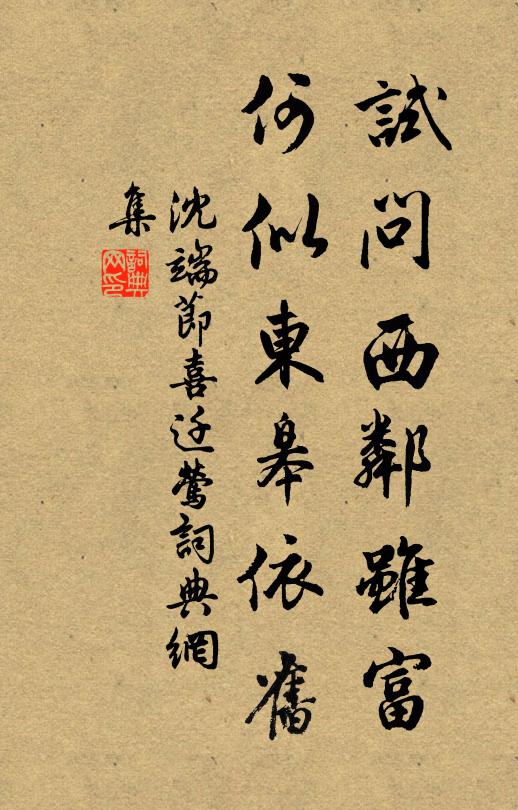 試問西鄰雖富
何似東皋依舊
沈端節喜迁鶯詞典網
集
詞典
网印